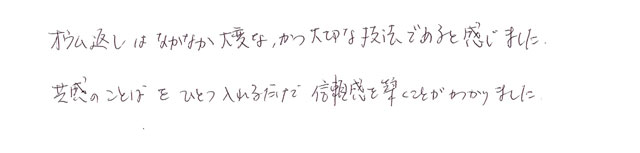 オウム返しはなかなか大変な,かつ大切な技法であると感じました.
共感のことばをひとつ入れるだけで信頼感を築くことがわかりました.